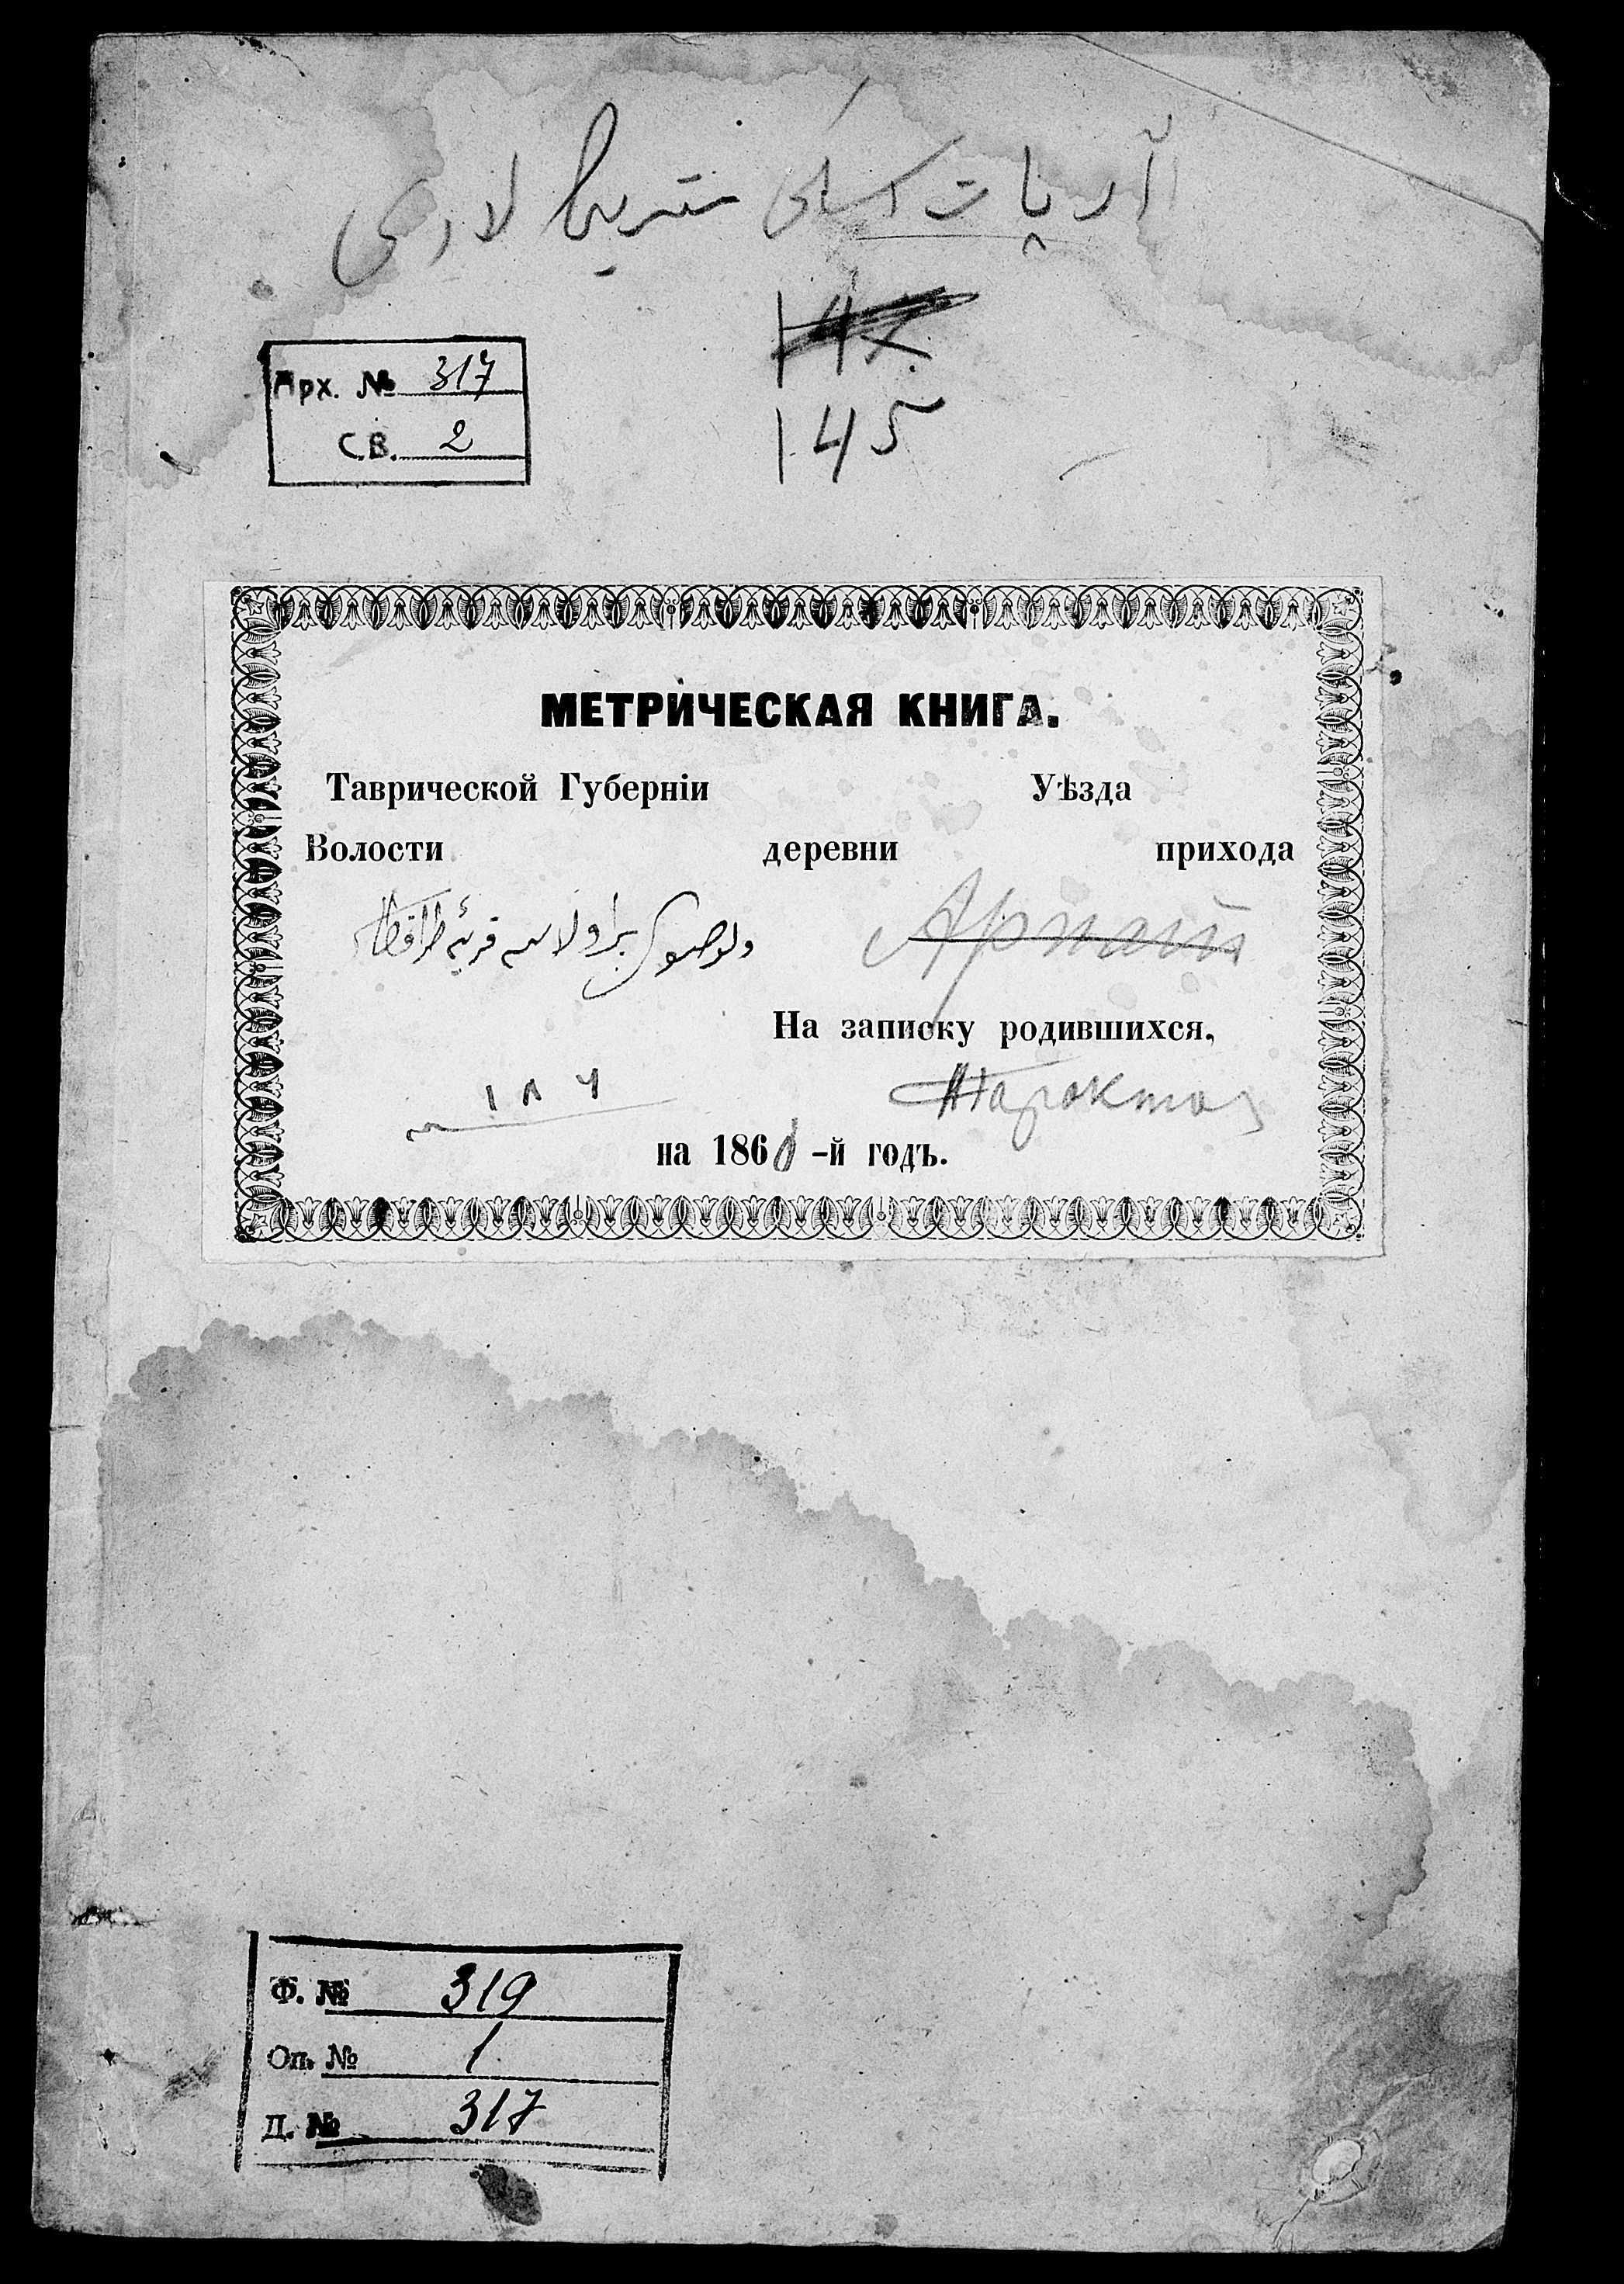 آرپات اسكى متريقا لارى
147
145
Арх. № 317
С.В. 2
МЕТРИЧЕСКАЯ КНИГА.
Таврической Губерніи Уѣзда
Волости деревни прихода
قريه
Арпат
На записку родившихся,
١٨٦
Таракташ
на 1860-й годъ.
Ф. № 319
Оп. № 1
Д. № 317